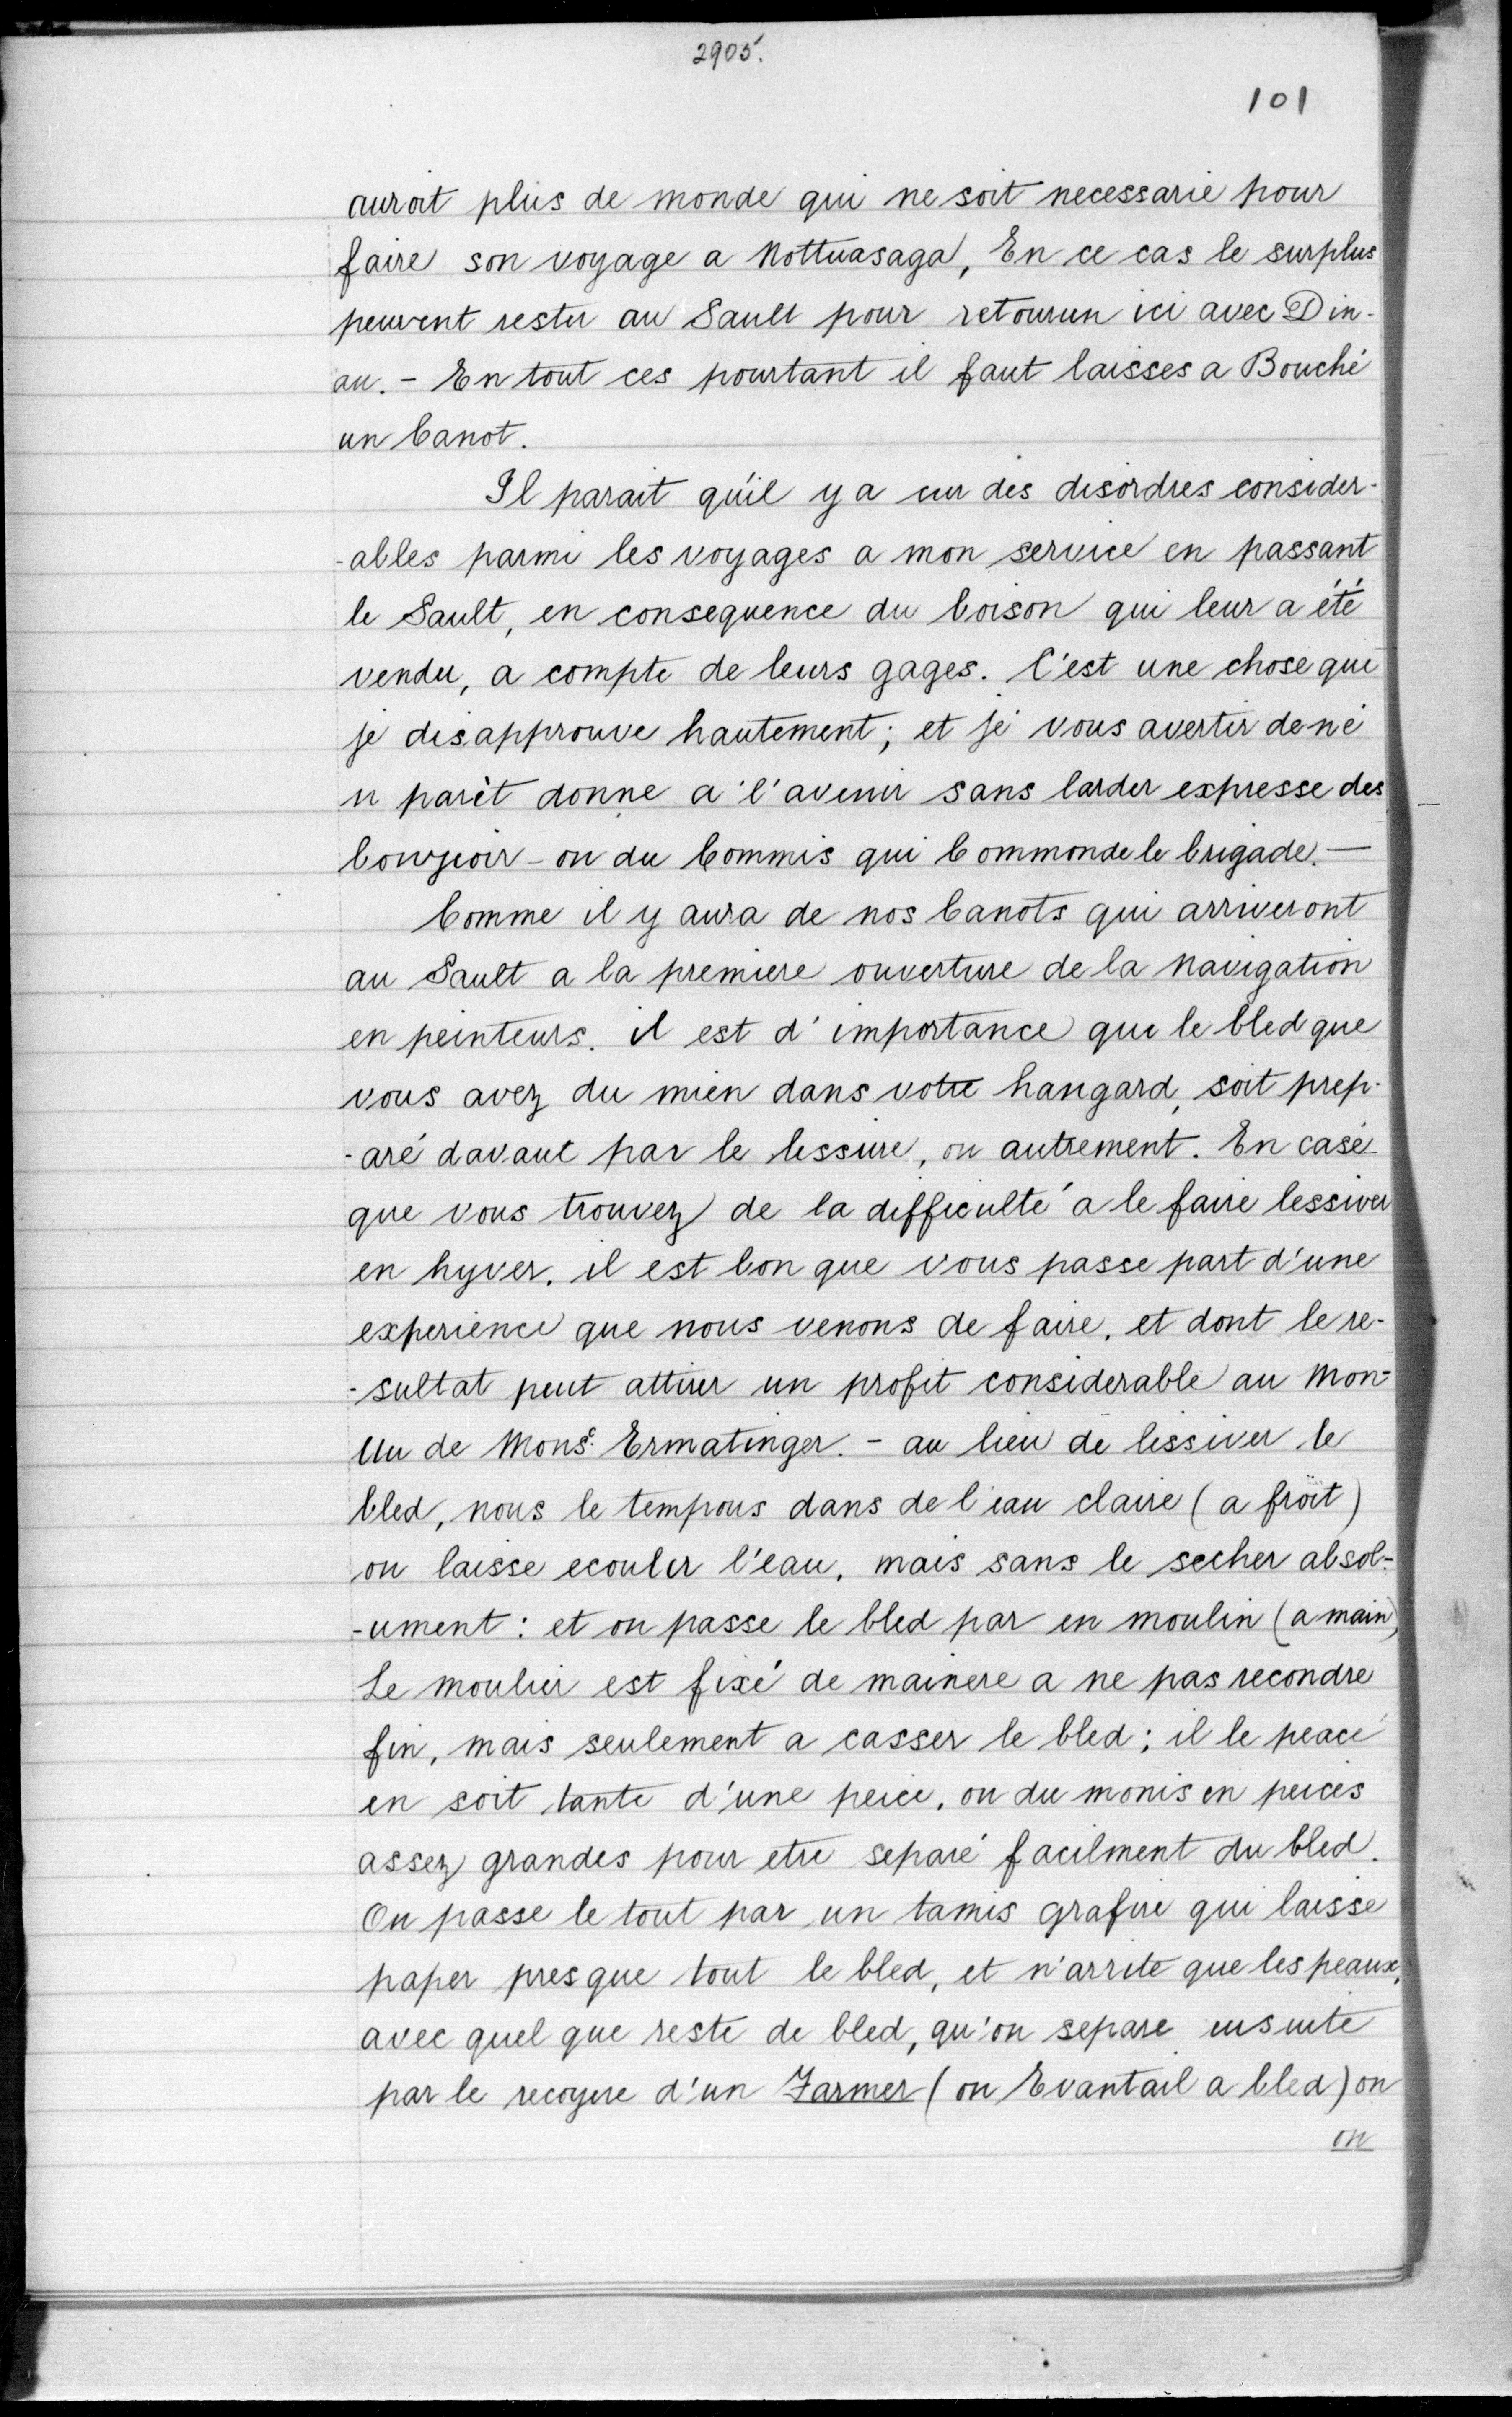 2905.
101
auroit plus de monde qui ne soit necessarie pour
faire son voyage a Nottuasaga, En ce cas le surplus
peuvent rester au Sault pour retourun ici avec Din-
au. - En tout ces pourtant il faut laisses a Bouché
un Canot.
Il parait qu'il y a eur des disordres consider-
-ables parmi les voyages a mon service en passant
le Sault, en consequence du boison qui leur a été
vendu, a compte de leurs gages. C'est une chose que
je disapprouve hautement; et je vous avertir de ne
n parèt donne a l'avenir sans larder expresse des
bourjoir - ou du Commis qui Commonde le brigade. -
Comme il y aura de nos Canots qui arriveront
au Sault a la premiere ouverture de la navigation
en peinteurs. il est d'importance que le bled que
vous avez du mien dans votre hangard, soit prep-
-aré davant par le lessure, ou autrement. En case
que vous trouvez de la difficulté a le faire lessiver
en hyver. il est bon que vous passe part d'une
experience que nous venons de faire, et dont le re-
-sultat peut attirer un profit considerable au Mon-
Un de Monsr. Ermatinger. - au lieu de lissiver le
bled, nous le tempous dans de l'eau claire (a froit)
on laisse ecouler l'eau, mais sans le secher absol-
-ument: et on passe le bled par en moulin (a main)
Le moulin est fixé de mainere a ne pas recondre
fin, mais seulement a casser le bled; il le peace
en soit tante d'une peice, ou du monis en peices
assez grandes pour etre separé facilment du bled.
On passe le tout par un tamis grafire qui laisse
paper presque tout le bled, et n'arrite que les peaux,
avec quel que reste de bled, qu'on separe ensuite
par le recoyere d'un Farmer (ou Evantail a bled) on
on